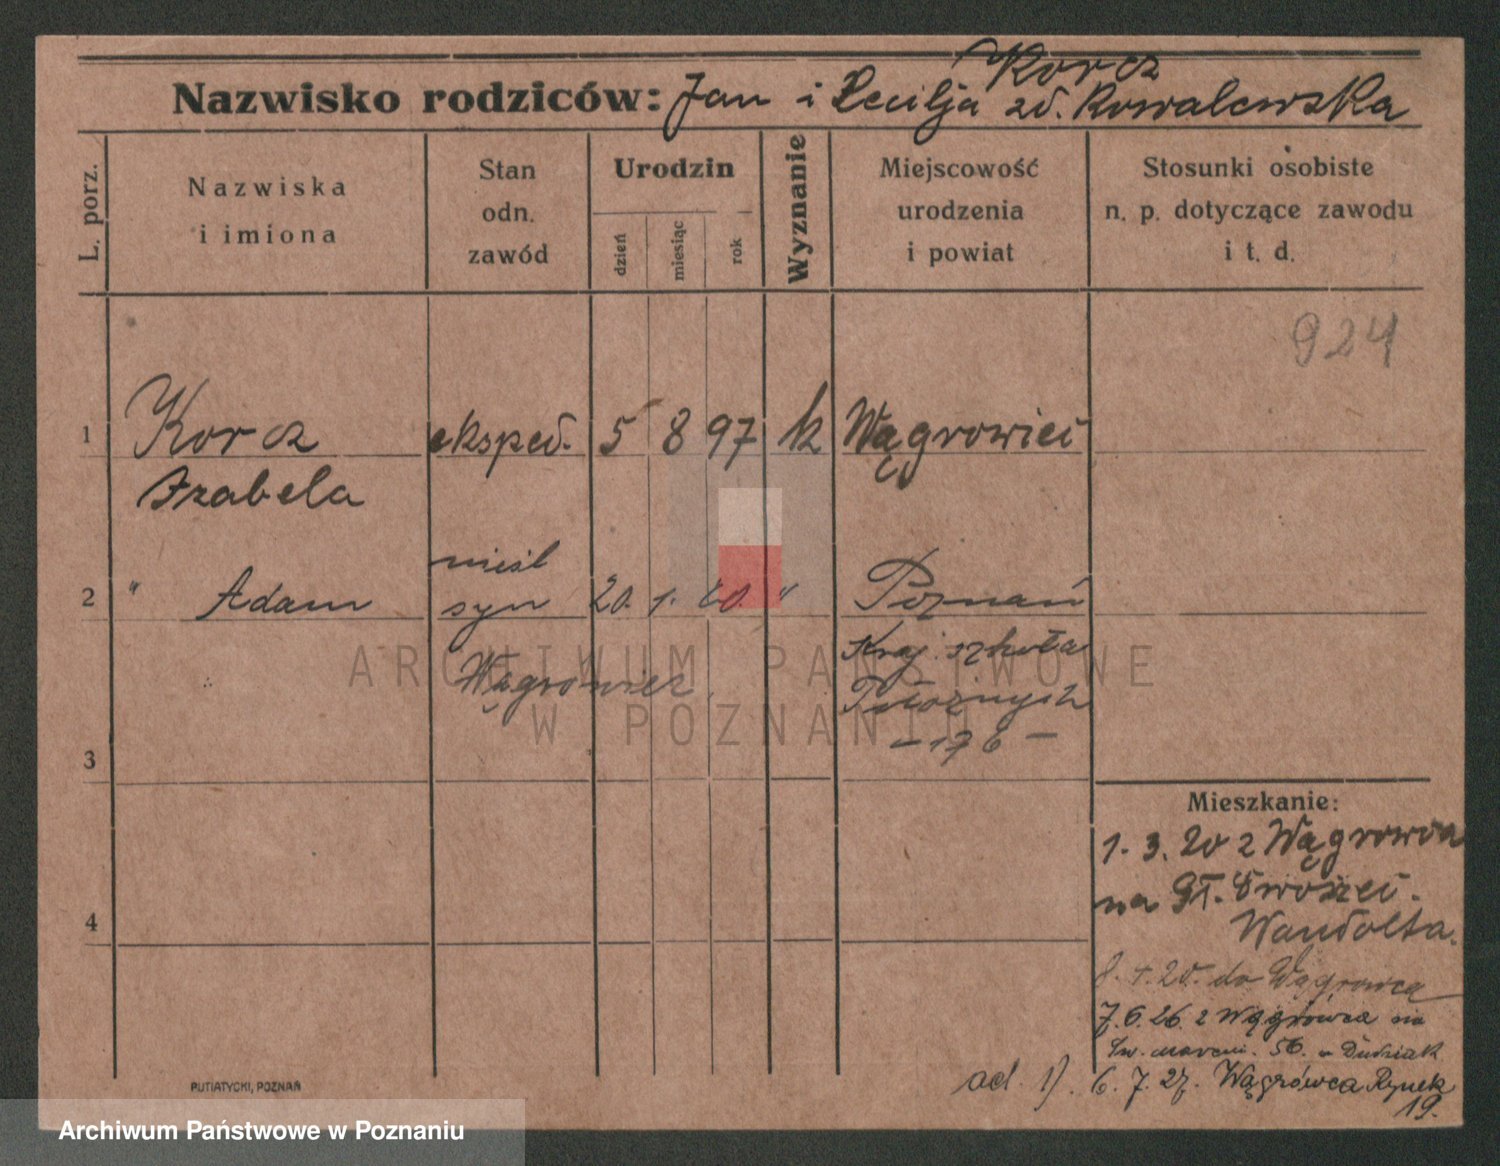 Korcz
Nazwisko rodziców: Jan i Cecilja zd. Kowalewska
L. porz.
Nazwiska
i imiona
Stan
odn.
zawód
Urodzin
dzień
miesiąc
rok
Wyznanie
Miejscowość
urodzenia
i powiat
Stosunki osobiste
n. p. dotyczące zawodu
i t. d.
924
1 Korcz eksped. 5 8 97 k Wągrowiec
Izabela
nieśl
2 " Adam syn 20. 1. 20. " Poznań
Kraj. szkoła
Wągrowiec
Położnych
- 176 -
3
4
Mieszkanie:
1. 3. 20 z Wągrowca
na Gł. Dworzec.
8. 4. 20. do Wągrowca
7. 6. 26 z Wągrówca na
Św. Marcin. 56. u Dudziak
ad. 1). 6. 7. 27. Wągrówca Rynek
19.
PUTIATYCKI, POZNAŃ
ARCHIWUM PAŃSTWOWE
W POZNANIU
Archiwum Państwowe w Poznaniu